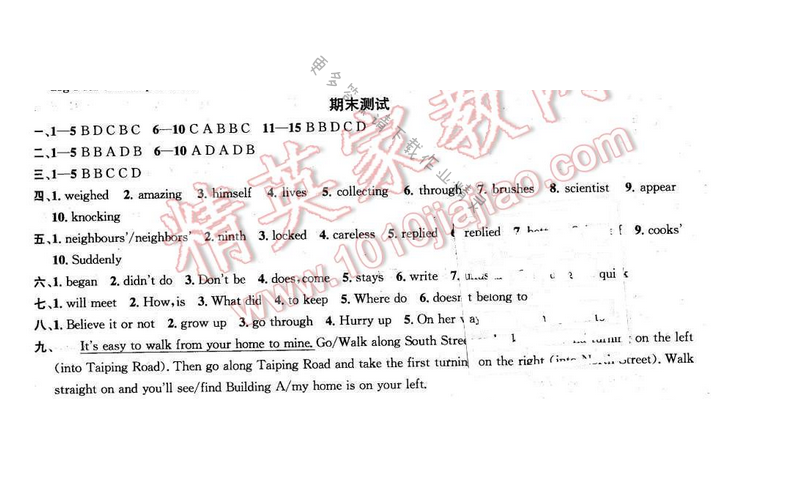 期末测试
一、1—5 B D C B C 6—10 C A B B C 11—15 B B D C D
二、1—5 B B A D B 6—10 A D A D B
三、1—5 B B C C D
四、1. weighed 2. amazing 3. himself 4. lives 5. collecting 6. through 7. brushes 8. scientist 9. appear
10. knocking
五、1. neighbours'/neighbors' 2. ninth 3. locked 4. careless 5. replied 6. replied 7. 9. cooks'
10. Suddenly
六、1. began 2. didn't do 3. Don't be 4. does, come 5. stays 6. write 7.
七、1. will meet 2. How, is 3. What did 4. to keep 5. Where do 6. doesn't belong to
八、1. Believe it or not 2. grow up 3. go through 4. Hurry up 5. On her way
九、 It's easy to walk from your home to mine. Go/Walk along South Street on the left
(into Taiping Road). Then go along Taiping Road and take the first turning on the right (into North Street). Walk
straight on and you'll see/find Building A/my home is on your left.
精英家教网
www.1010jiajiao.com